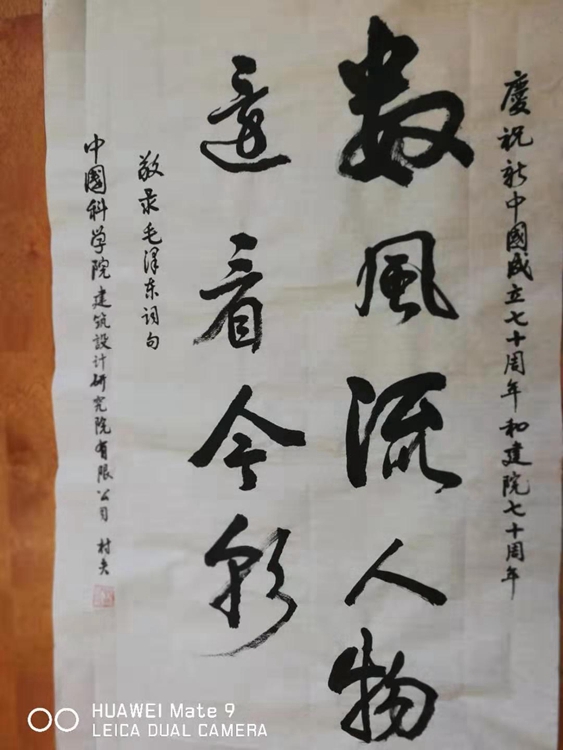 慶祝新中國成立七十周年和建院七十周年
数風流人物
還看今朝
敬录毛泽东词句
中國科学院建筑设计研究院有限公司 村夫
HUAWEI Mate 9
LEICA DUAL CAMERA